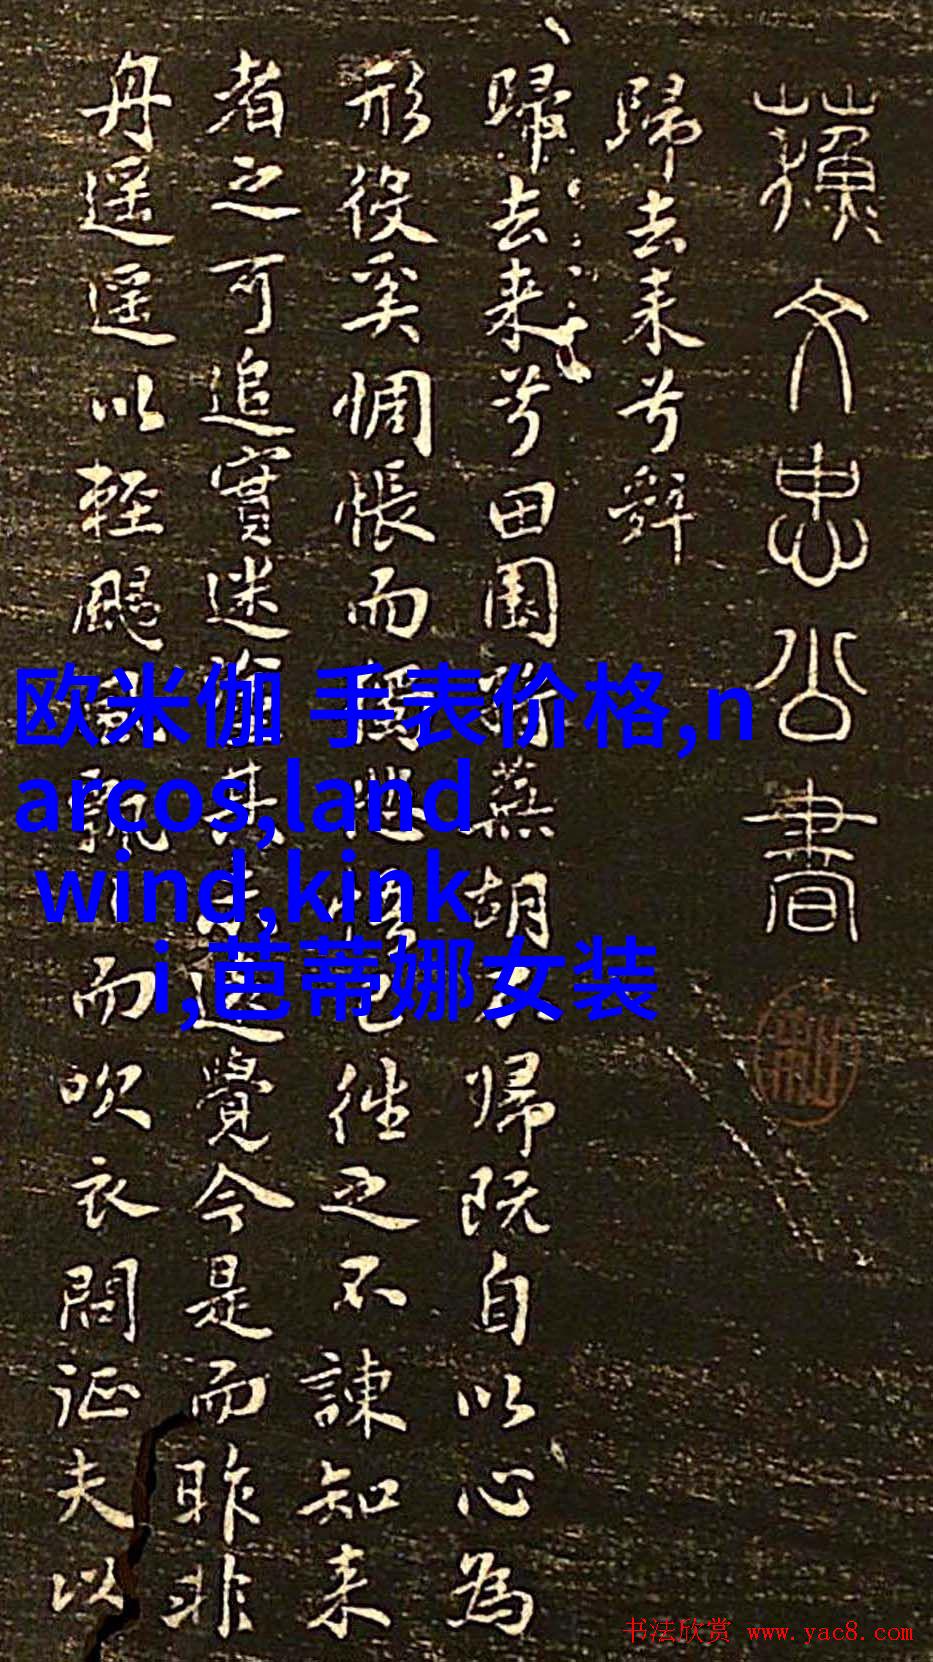 蘇文忠公書
歸去来兮辭
歸去来兮田園將蕪胡不歸既自以心為
形役奚惆悵而獨悲悟已往之不諫知来
者之可追實迷途其未遠覺今是而昨非
舟遥遥以輕颺風飄〻而吹衣問征夫以
欧米伽 手表价格,n
arcos,land
wind,kink
i,芭蒂娜女装
书法欣赏 www.yac8.com